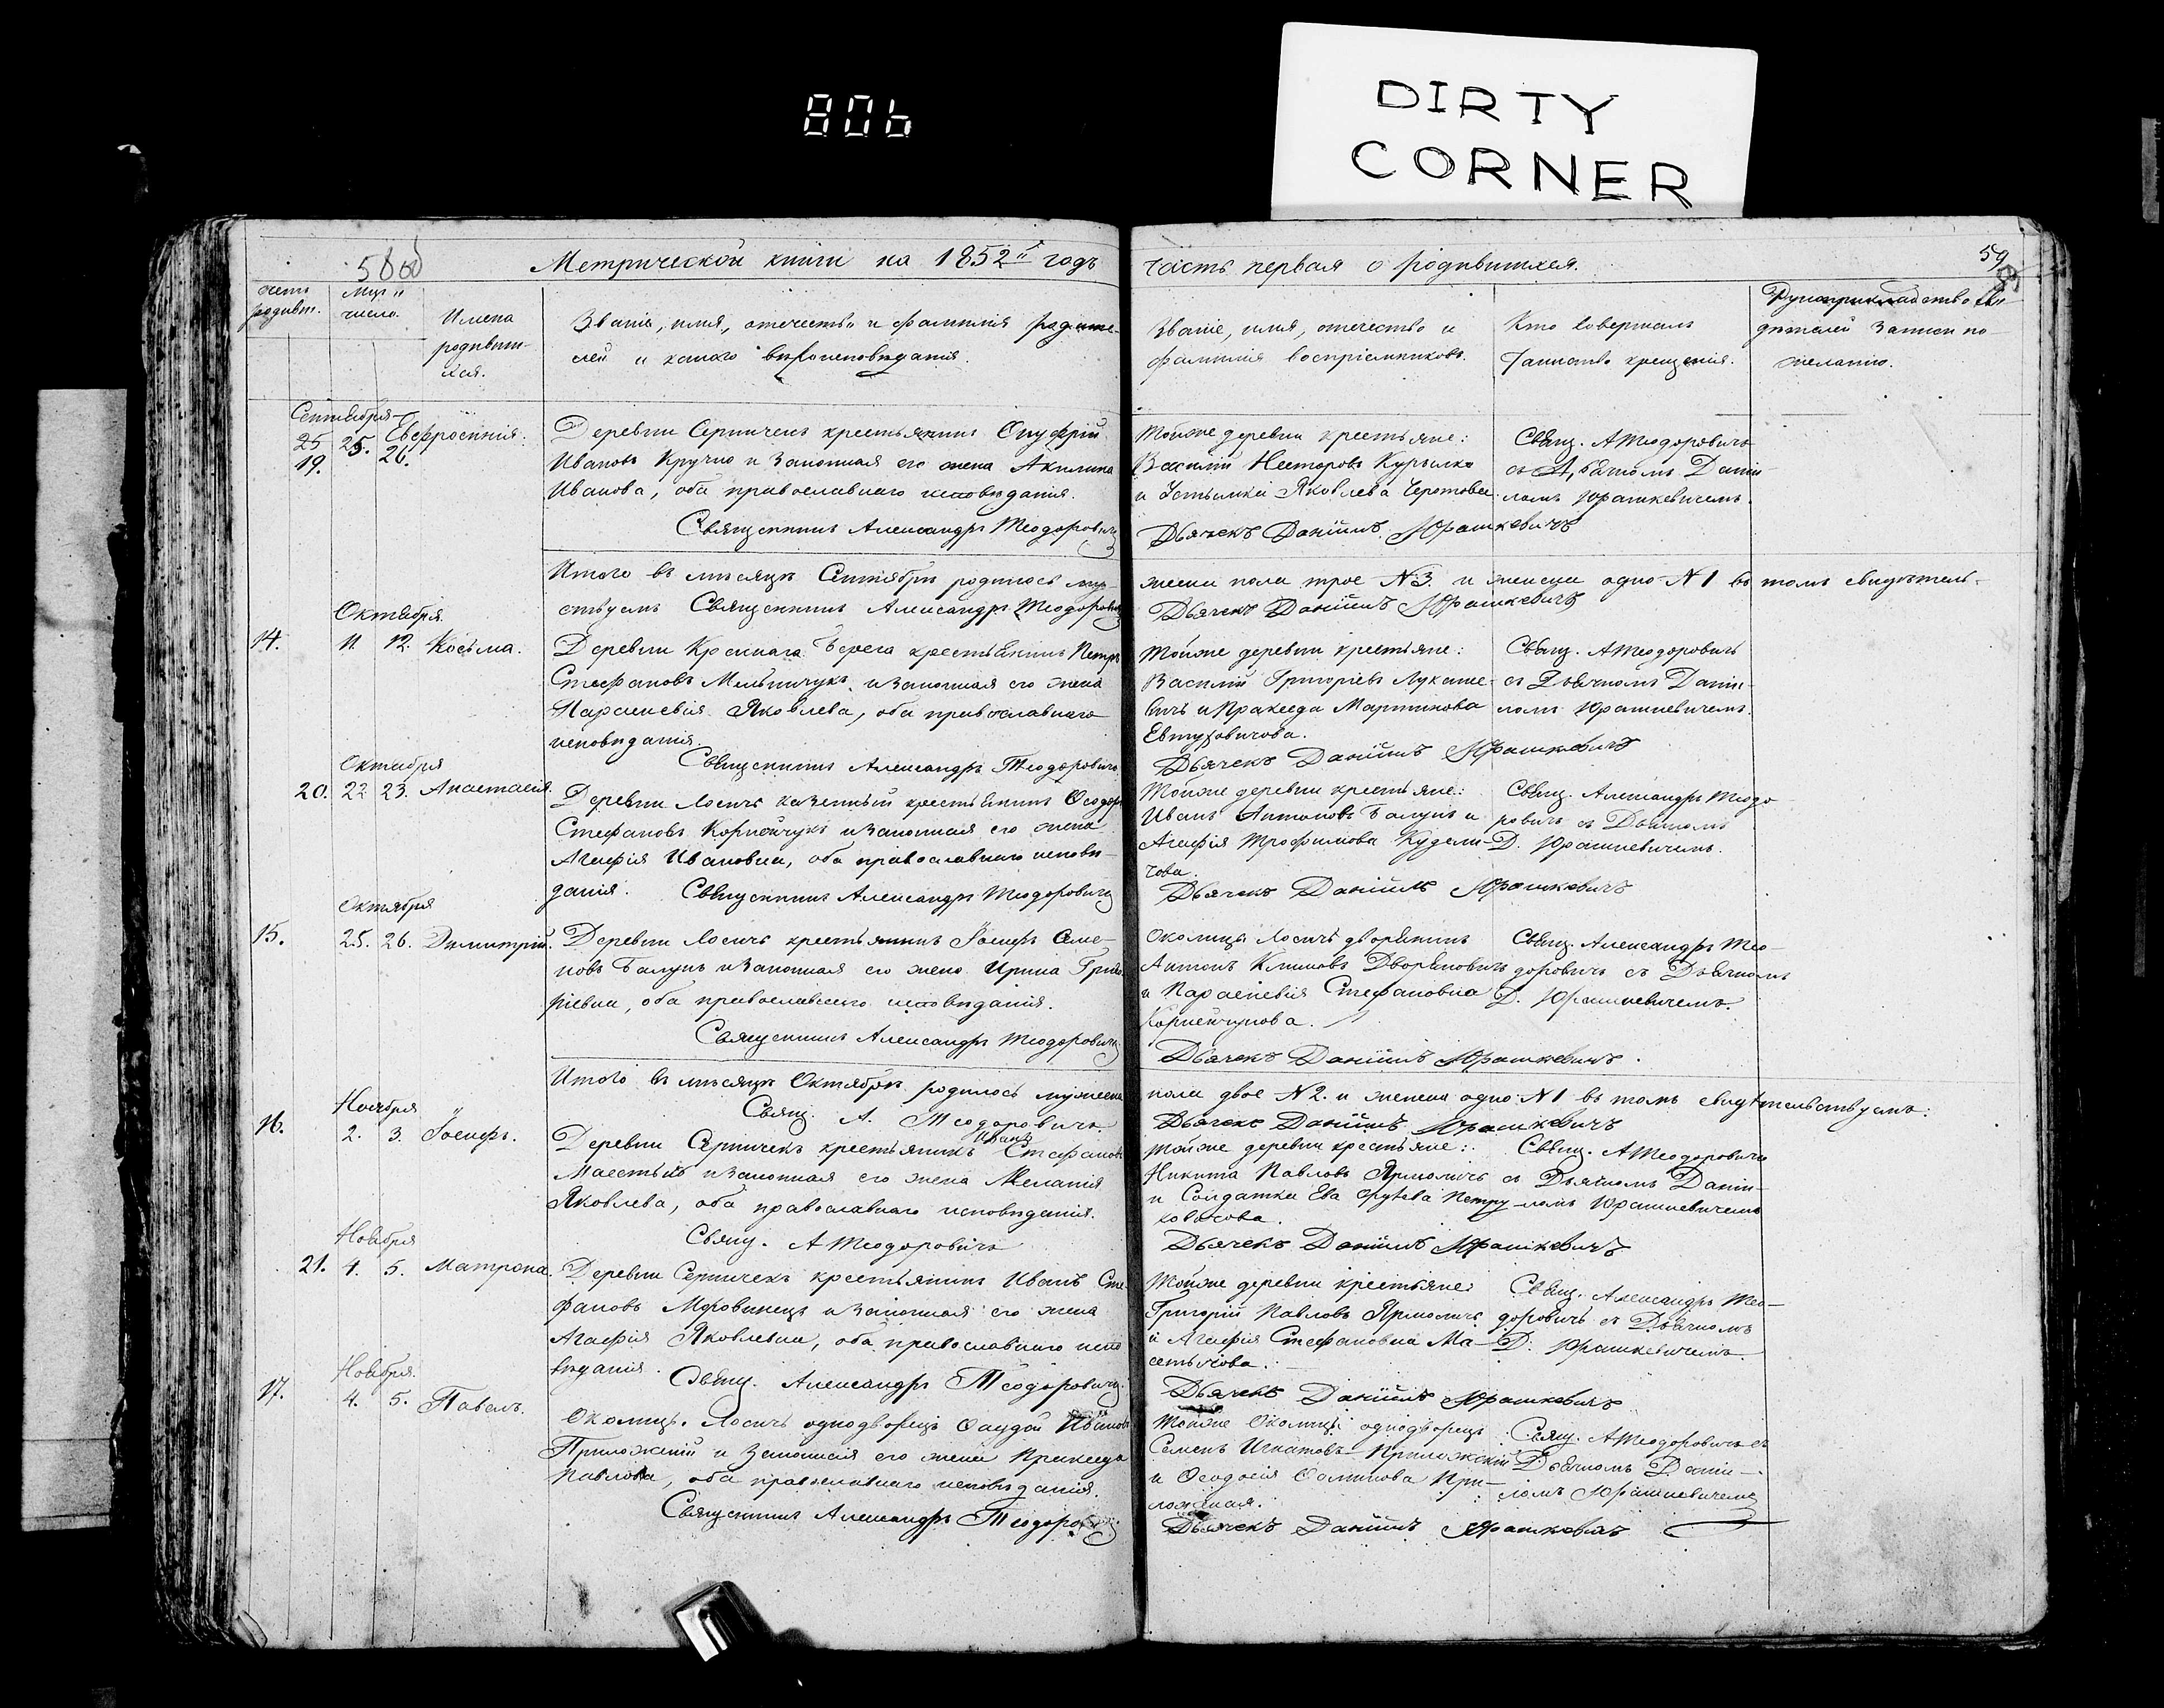 806
DIRTY
CORNER
58 об
Метрической книги на 1852й годъ
часть первая о родившихся.
59
счетъ родивш.
Мцъ и число.
Имена
родивши-
хся.
Званіе, имя, отечество и фамилія родите-
лей и какого вѣроисповѣданія.
Званіе, имя, отечество и
фамилія воспріемниковъ.
Кто совершалъ
таинство крещенія.
Рукоприкладство сви-
дѣтелей записи по
желанію.
Сентября
25 25. Евфросинія.
19. 26.
Деревни Серничекъ крестьянинъ Онуфрій
Ивановъ Кручко и законная его жена Акилина
Иванова, оба православнаго исповѣданія.
Священникъ Александръ Теодоровичъ
Тойже деревни крестьяне:
Василій Несторовъ Курылко
и Устымія Яковлева
Свящ. А Теодоровичъ
съ Дьячкомъ Даніи-
ломъ Юрашкевичемъ.
Дьячекъ Даніилъ Юрашкевичъ
Итого въ мѣсяцѣ Сентябрѣ родилось му-
жеска пола трое №3. и женска одно №1 въ томъ свидѣтель-
ствуемъ Священникъ Александръ Теодоровичъ
Дьячекъ Даніилъ Юрашкевичъ
Октября
14. 11. 12. Косьма.
Деревни Краснаго Берега крестьянинъ Петръ
Стефановъ Мельничукъ и законная его жена
Параскевія Яковлева, оба православнаго
исповѣданія.
Священникъ Александръ Теодоровичъ
Тойже деревни крестьяне:
Василій Григорьевъ Лукаше-
вичъ и Пракседа Мартинова
Евтуховичова.
Свящ. А Теодоровичъ
съ Дьячкомъ Даніи-
ломъ Юрашкевичемъ.
Дьячекъ Даніилъ Юрашкевичъ
Октября
20. 22 23. Анастасія
Деревни Лосичъ казенный крестьянинъ Ѳеодоръ
Стефановъ Корнейчукъ и законная его жена
Агафія Ивановна, оба православнаго исповѣ-
данія. Священникъ Александръ Теодоровичъ
Тойже деревни крестьяне:
Иванъ Антоновъ Балунъ и
Агафія Трофимова Кудели-
чова.
Свящ. Александръ Теодо-
ровичъ съ Дьячкомъ
Д. Юрашкевичемъ.
Дьячекъ Даніилъ Юрашкевичъ
Октября
15. 25. 26. Димитрій.
Деревни Лосичъ крестьянинъ Іосифъ Семе-
новъ Балунъ и законная его жена Ирина Григо-
ріевна, оба православнаго исповѣданія.
Священникъ Александръ Теодоровичъ
Околицы Лосичъ дворянинъ
Антонъ Климовъ Дворяновичъ
и Параскевія Стефановна
Корнейчукова.
Свящ. Александръ Тео-
доровичъ съ Дьячкомъ
Д. Юрашкевичемъ.
Дьячекъ Даніилъ Юрашкевичъ.
Итого въ мѣсяцѣ Октябрѣ родилось мужеска
пола двое №2. и женска одно №1 въ томъ свидѣтельствуемъ:
Свящ. А. Теодоровичъ
Дьячекъ Даніилъ Юрашкевичъ
Ноября
16. 2. 3. Іосифъ.
Деревни Серничекъ крестьянинъ Иванъ Стефановъ
и законная его жена Меланія
Яковлева, оба православнаго исповѣданія.
Свящ. А Теодоровичъ
Тойже деревни крестьяне:
Никита Павловъ Ярмоличъ
и Солдатка Ева Петру-
ковичова.
Свящ. А Теодоровичъ
съ Дьячкомъ Даніи-
ломъ Юрашкевичемъ
Дьячекъ Даніилъ Юрашкевичъ
Ноября
21. 4. 5. Матрона.
Деревни Серничекъ крестьянинъ Иванъ Сте-
фановъ Мировинецъ и законная его жена
Агафія Яковлевна, оба православнаго испо-
вѣданія. Свящ. Александръ Теодоровичъ.
Тойже деревни крестьяне:
Григорій Павловъ Ярмоличъ
и Агафія Стефановна Ма-
Свящ. Александръ Тео-
доровичъ съ Дьячкомъ
Д. Юрашкевичемъ.
Дьячекъ Даніилъ Юрашкевичъ
Ноября.
17. 4. 5. Павелъ.
Околицы Лосичъ однодворецъ Ивановъ
Приложскій и Законная его жена Пракседа
Павлова, оба православнаго исповѣданія.
Священникъ Александръ Теодоровичъ
Тойже Околицы однодворецъ
Семенъ Игнатовъ Приложскій
и Ѳеодосія При-
ложская.
Свящ. А Теодоровичъ съ
Дьячкомъ Даніи-
ломъ Юрашкевичемъ
Дьячекъ Даніилъ Юрашкевичъ